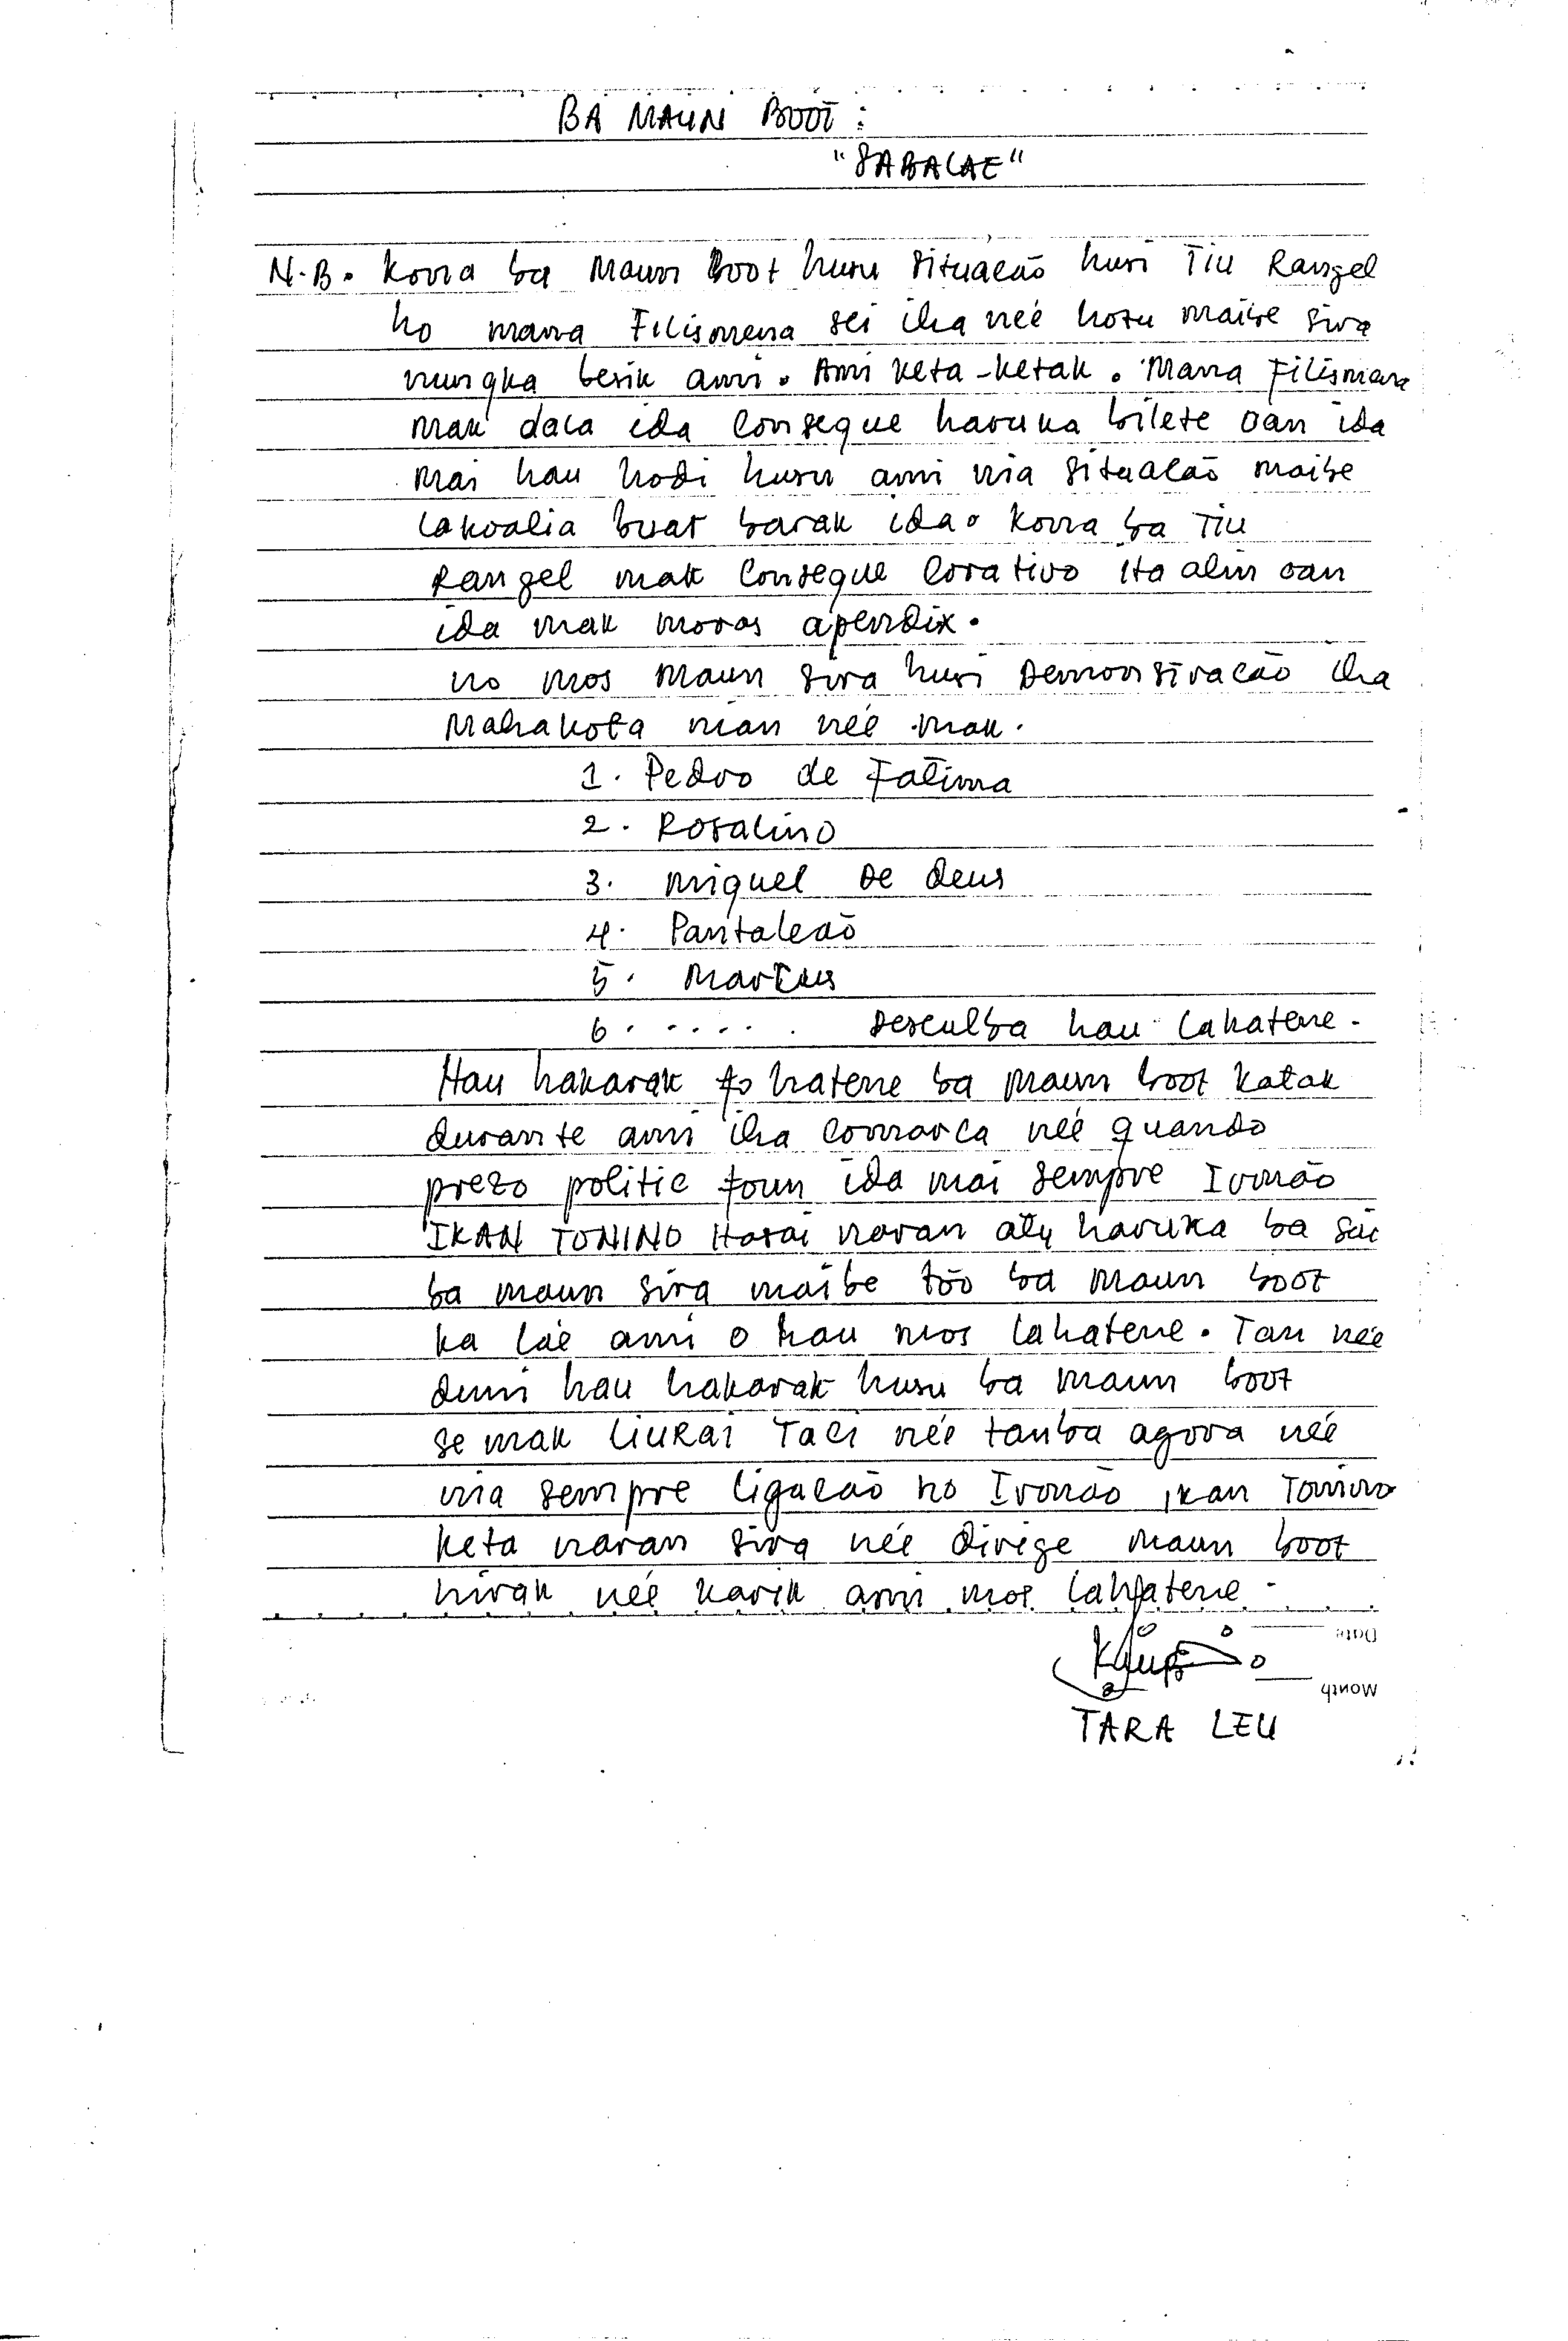 BA MAUN BOOT :
"SABALAE"
N.B. Kona ba Maun Boot husu situacão husi Tiu Rangel
ho mana Filismena sei iha neé hotu maibe sira
nungka besik ami. Ami keta-ketak. Mana Filismena
mak dala ida consegue haruka bilete oan ida
mai hau hodi husu ami nia situacão maibe
lakoalia buat barak ida. Kona ba Tiu
Rangel mak consegue lorativo ita alin oan
ida mak moras apendix.
no mos maun sira husi Demonstracão iha
Mahakota nian neé mak.
1. Pedro de Fatima
2. Rosalino
3. Miguel De deus
4. Pantaleão
5. Markus
6. ..... Desculba hau lahatene.
Hau hakarak fo hatene ba maun boot katak
durante ami iha comarca neé quando
prezo politic foun ida mai sempre Irmão
IKAN TONINO Hasai naran atu haruka ba sai
ba maun sira maibe tóo ba maun boot
ka láe ami o hau mos lahatene. Tan neé
duni hau hakarak husu ba maun boot
se mak LiuRai Taci neé tanba agora neé
nia sempre ligacão ho Irmão ikan Tonino
keta naran sira neé dirige maun boot
hirak neé karik ami mos lahatene.
TARA LEU
Date
Month